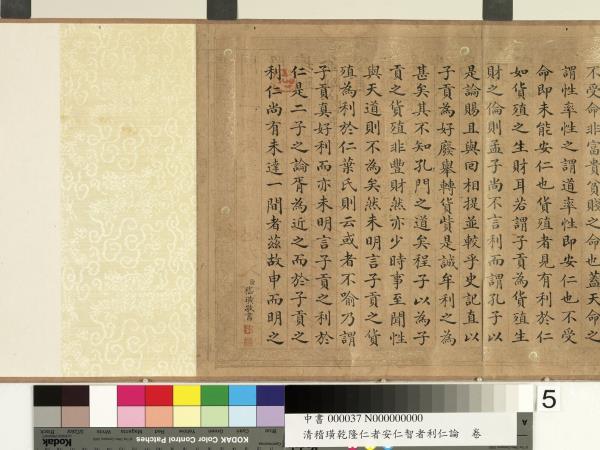 不受命非富貴貧賤之命也蓋天命之
謂性率性之謂道率性即安仁也不受
命即未能安仁也貨殖者見有利於仁
如貨殖之生財耳若謂子貢為貨殖生
財之倫則孟子尚不言利而謂孔子以
是論賜且與回相提並較乎史記直以
子貢為好廢舉轉貨貲是誠牟利之為
甚矣其不知孔門之道矣程子以為子
貢之貨殖非豐財然亦少時事至聞性
與天道則不為矣然未明言子貢之貨
殖為利於仁葉氏則云或者不喻乃謂
子貢真好利而亦未明言子貢之利於
仁是二子之論胥為近之而於子貢之
利仁尚有未達一間者茲故申而明之
臣嵇璜敬書
5
Kodak
KODAK Color Control Patches
Blue
Cyan
Green
Yellow
Red
Magenta
White
3/Color
Black
A
中書 000037 N000000000
清嵇璜乾隆仁者安仁智者利仁論 卷